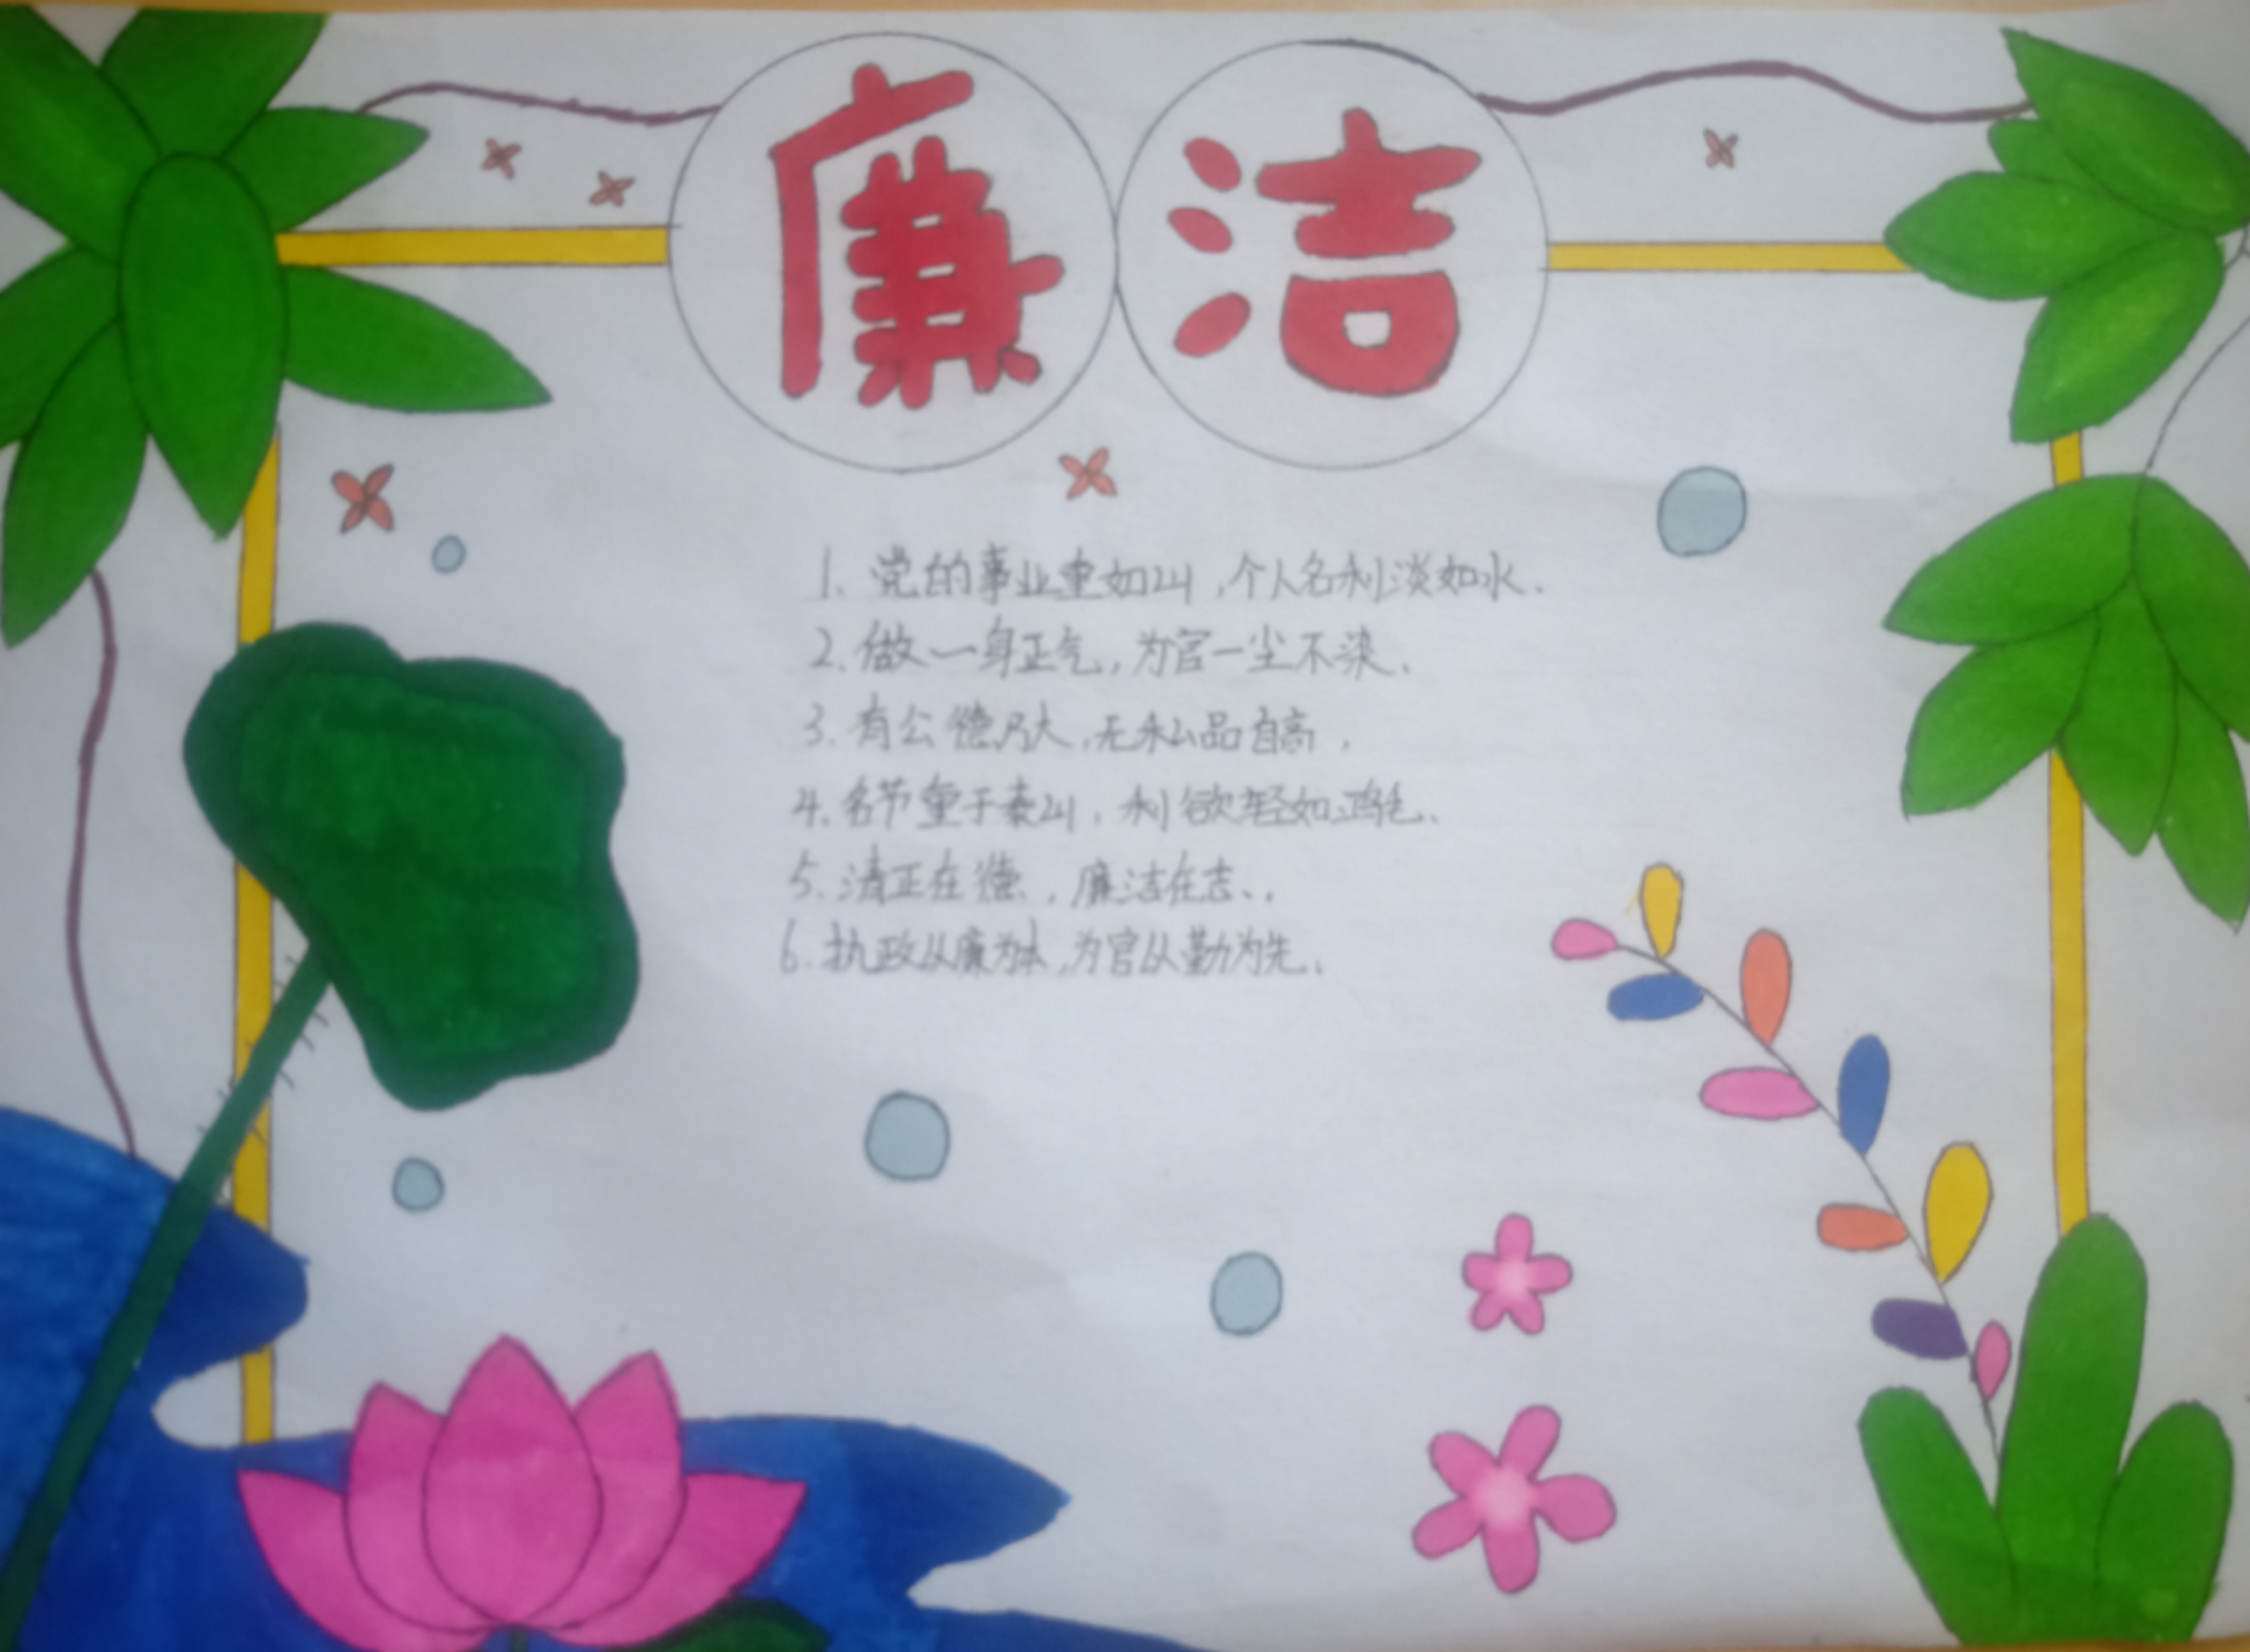 廉洁
1. 党的事业重如山,个人名利淡如水.
2. 做一身正气,为官一尘不染.
3. 有公德乃大,无私品自高,
4. 名节重于泰山,利欲轻如鸿毛、
5. 清正在德,廉洁在志、,
6. 执政从廉为本,为官从勤为先、